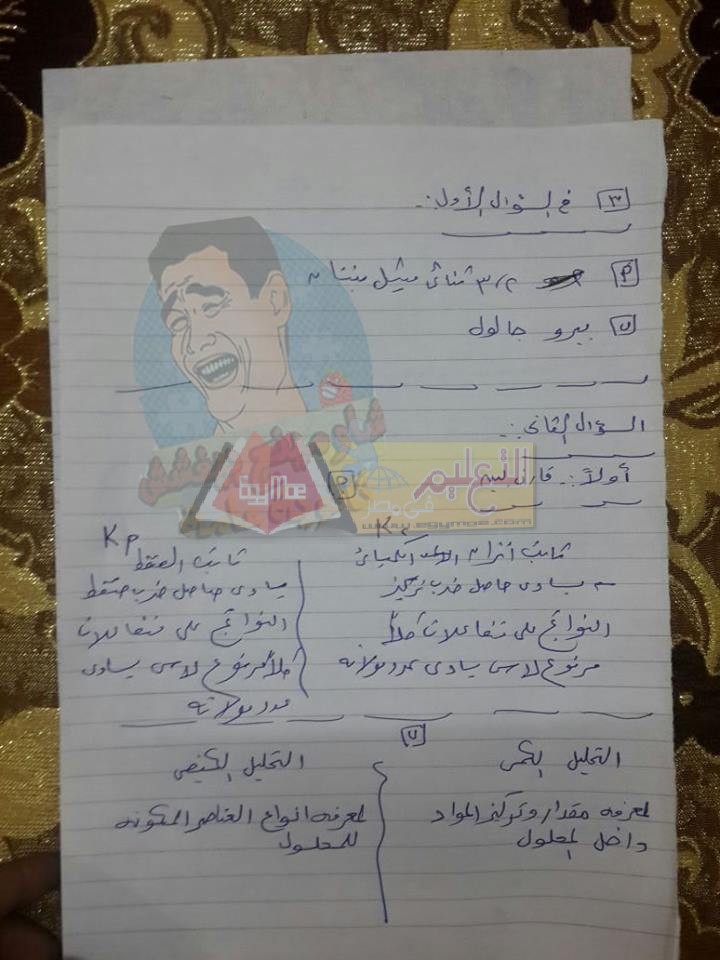 ٣ في السؤال الأول :-
P ٣،٢ ثنائي ميثيل بنتان
ں بيروجالول
السؤال الثاني :-
أولاً :- قارن بين
P
Kc
ثابت اتزان الكيميائي
يساوى حاصل ضرب تركيز
النواتج على متفاعلات كلاً
مرفوع لاسى يساوى عدد مولاته
Kp
ثابت الضغط
يساوى حاصل ضرب ضغط
النواتج على متفاعلات
كلاً مرفوع لاسى يساوى
عدد مولاته
ں
التحليل الكمى
لمعرفه مقدار وتركيز المواد
داخل المحلول
التحليل الكيفى
لمعرفه انواع العناصر المكونه
للمحلول
التعليم
فى مصر
www.egymoe.com
egymoe